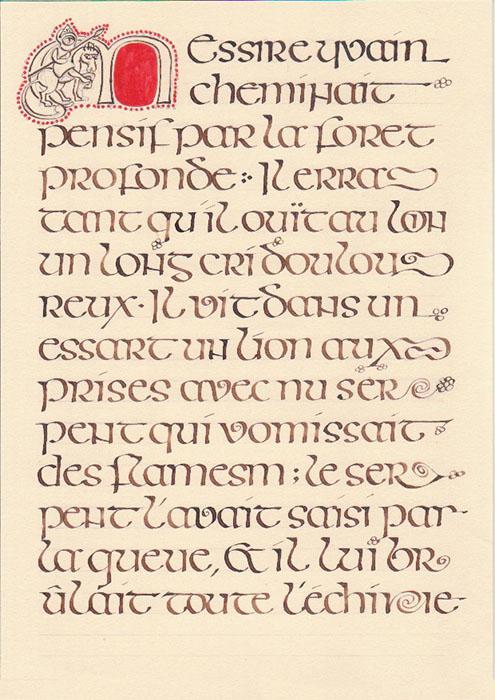 Messire yvain
cheminait
pensif par la foret
profonde :· Il erra
tant qu il ouït au loin
un long cri doulou
reux· Il vit dans un
essart un lion aux
prises avec nu ser
pent qui vomissait
des flamesm ; le ser
pent l'avait saisi par
la queue, & il lui br
ûlait toute l'échine